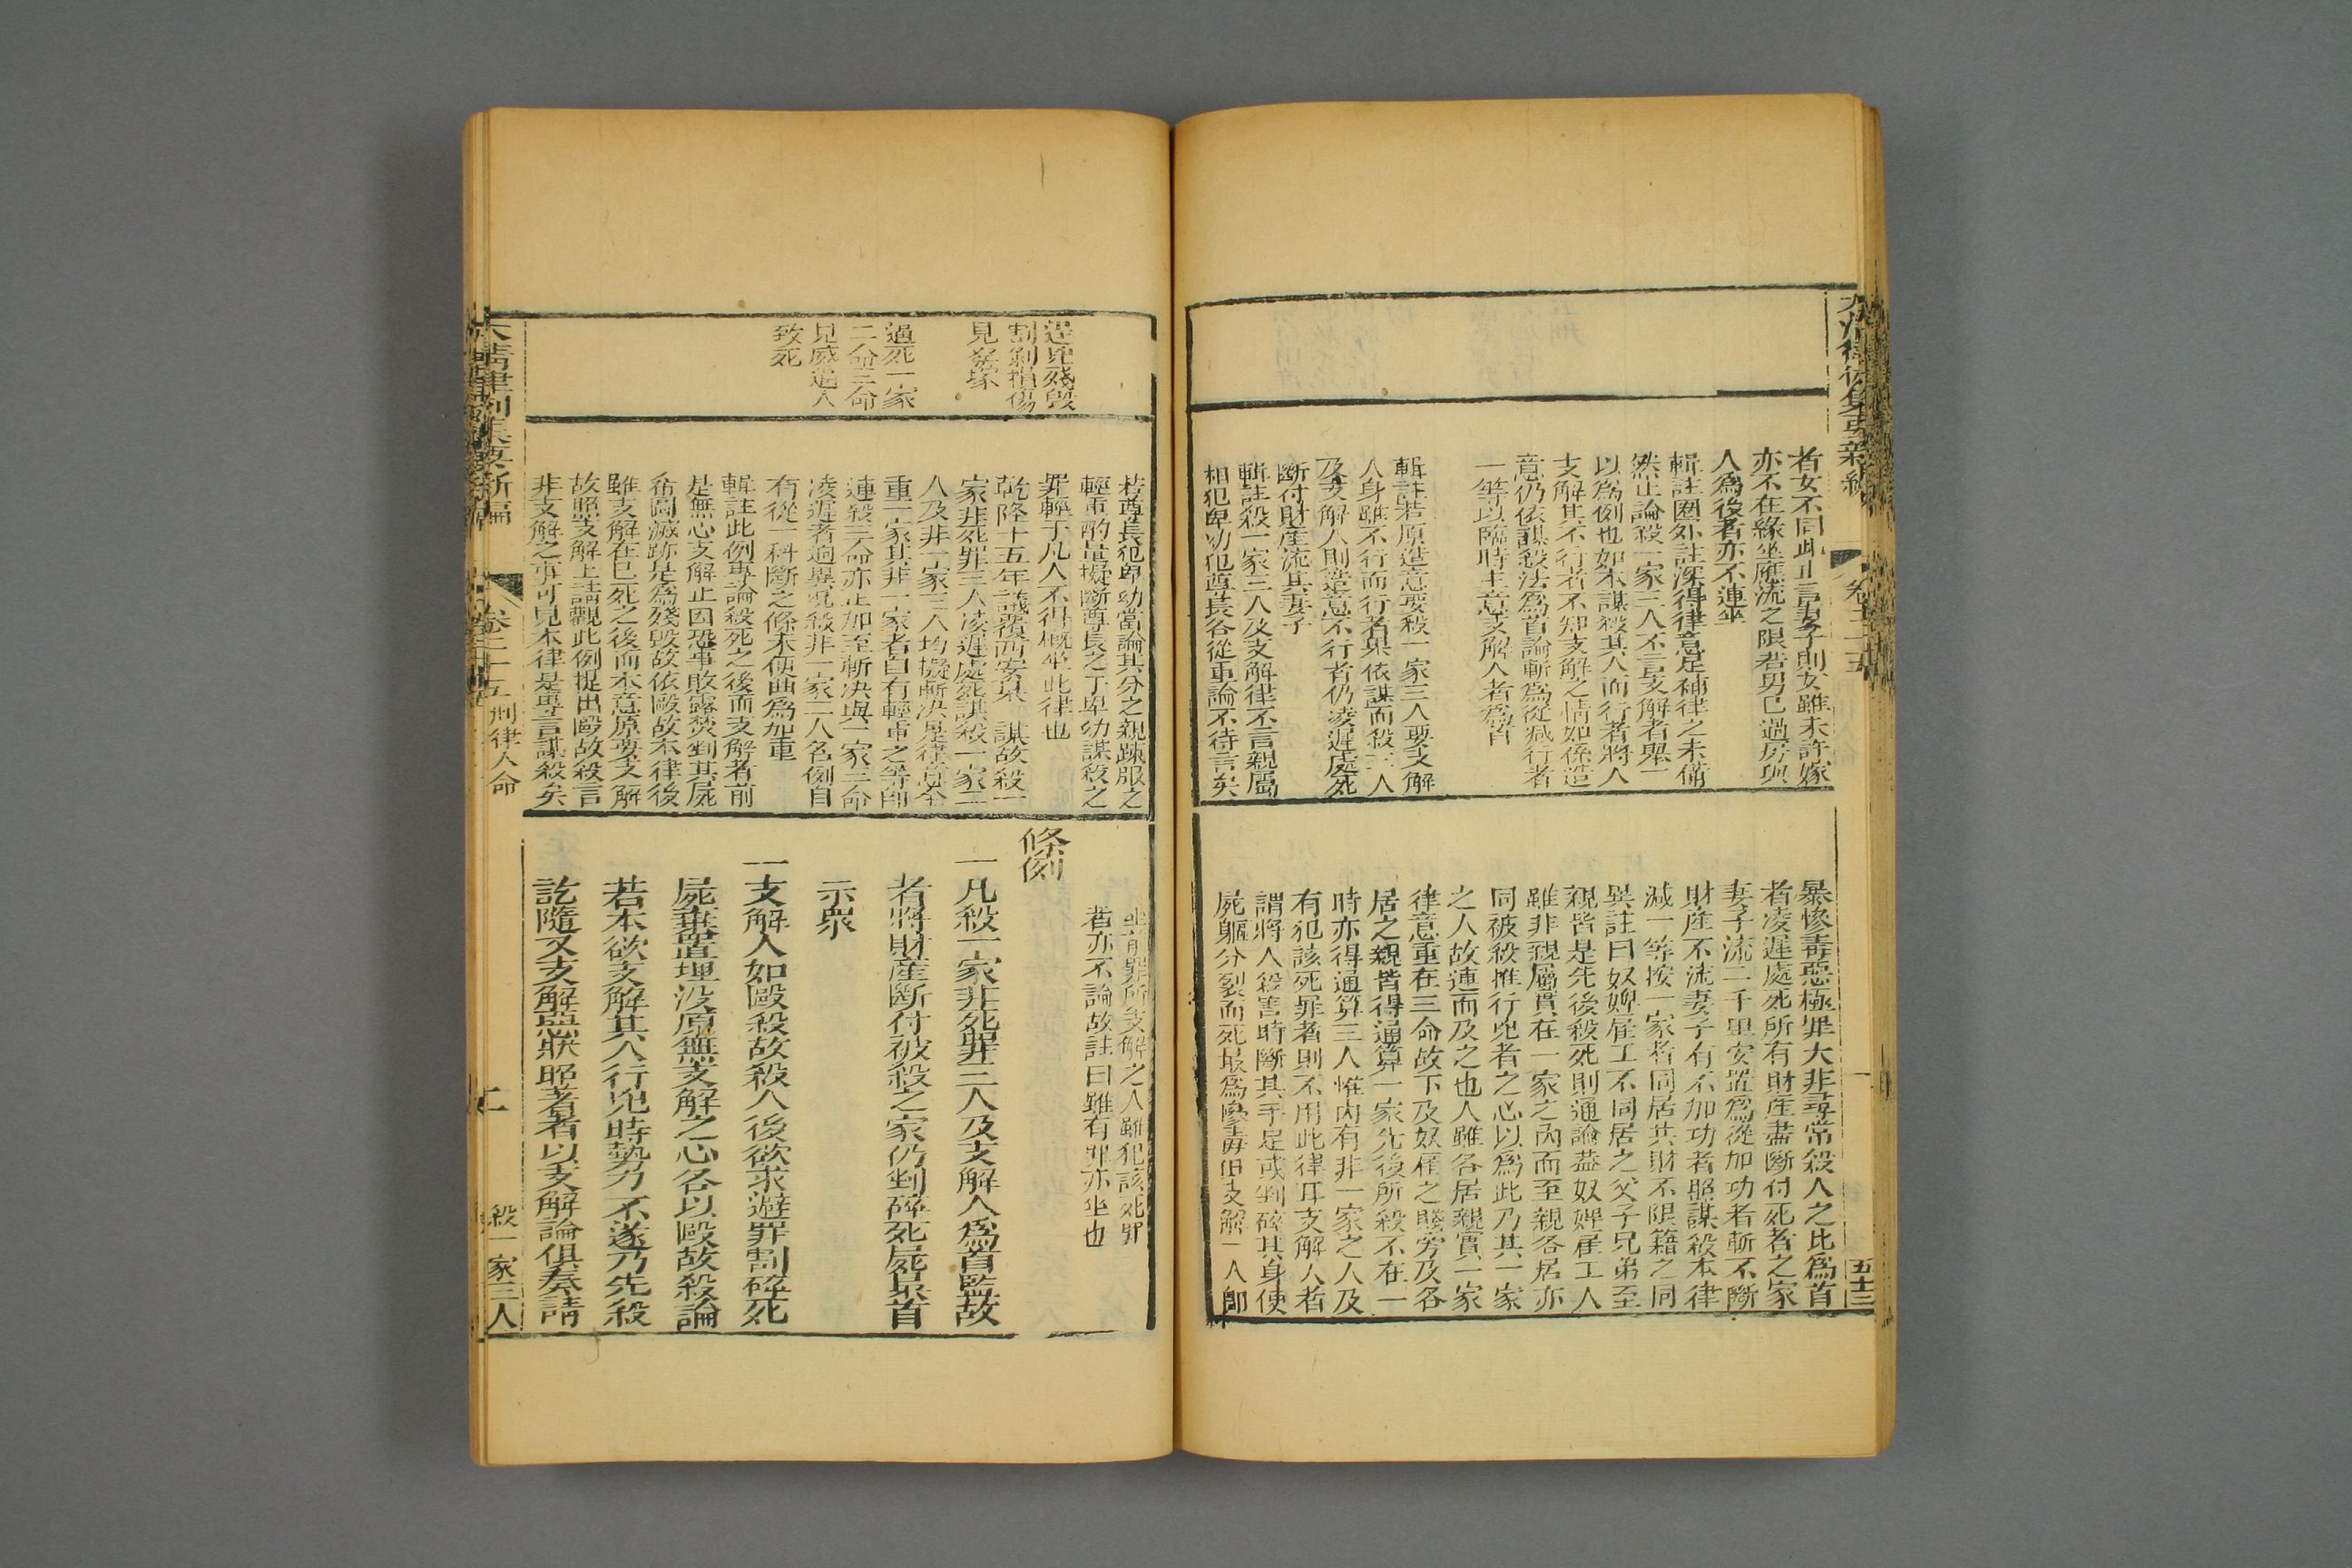 者女不同此止言妻子則女雖未許嫁
亦不在緣坐應流之限若男已過房與
人為後者亦不連坐
輯註圈外註深得律意足補律之未備
然止論殺一家三人不言支解者舉一
以為例也如本謀殺其人而行者將人
支解其不行者不知支解之情如係造
意仍依謀殺法為首論斬為從減行者
一等以臨時主意支解人者為首
輯註若原造意要殺一家三人要支解
人身雖不行而行者果依謀而殺三人
及支解人則造意不行者仍凌遲處死
斷付財產流其妻子
輯註殺一家三人及支解律不言親屬
相犯卑幼犯尊長各從重論不待言矣
暴慘毒惡極罪大非尋常殺人之比為首
者凌遲處死所有財產盡斷付死者之家
妻子流二千里安置為從加功者斬不斷
財產不流妻子有不加功者照謀殺本律
減一等按一家者同居共財不限籍之同
異註曰奴婢雇工不同居之父子兄弟至
親皆是先後殺死則通論蓋奴婢雇工人
雖非親屬實在一家之內而至親各居亦
同被殺惟行兇者之心以為此乃其一家
之人故連而及之也人雖各居親實一家
律意重在三命故下及奴雇之賤旁及各
居之親皆得通算一家先後所殺不在一
時亦得通算三人惟內有非一家之人及
有犯該死罪者則不用此律耳支解人者
謂將人殺害時斷其手足或剉碎其身使
屍軀分裂而死最為慘毒但支解一人卽
卷二十五
五十三
逞兇殘毀
割剝損傷
見發塚
逼死一家
二命三命
見威逼人
致死
若尊長犯卑幼當論其分之親疎服之
輕重酌量擬斷尊長之于卑幼謀殺之
罪輕于凡人不得概坐此律也
乾隆十五年議覆西安某 謀故殺一
家非死罪三人凌遲處死謀殺一家二
人及非一家三人均擬斬決是律意全
重一家其非一家者自有輕重之等卽
連殺三命亦止加至斬決與一家三命
凌遲者迥異況殺非一家二人名例自
有從一科斷之條未便曲為加重
輯註此例專論殺死之後而支解者前
是無心支解止因恐事敗露焚剉其屍
希圖滅跡是為殘毀故依毆故本律後
雖支解在已死之後而本意原要支解
故照支解上請觀此例提出毆故殺言
非支解之事可見本律是專言謀殺矣
坐前罪所支解之人雖犯該死罪
者亦不論故註曰雖有罪亦坐也
條例
一凡殺一家非死罪三人及支解人為首監故
者將財產斷付被殺之家仍剉碎死屍梟首
示眾
一支解人如毆殺故殺人後欲求避罪割碎死
屍棄置埋沒原無支解之心各以毆故殺論
若本欲支解其人行兇時勢力不遂乃先殺
訖隨又支解惡狀昭著者以支解論俱奏請
大清律例集要新編
卷二十五 刑律人命
殺一家三人